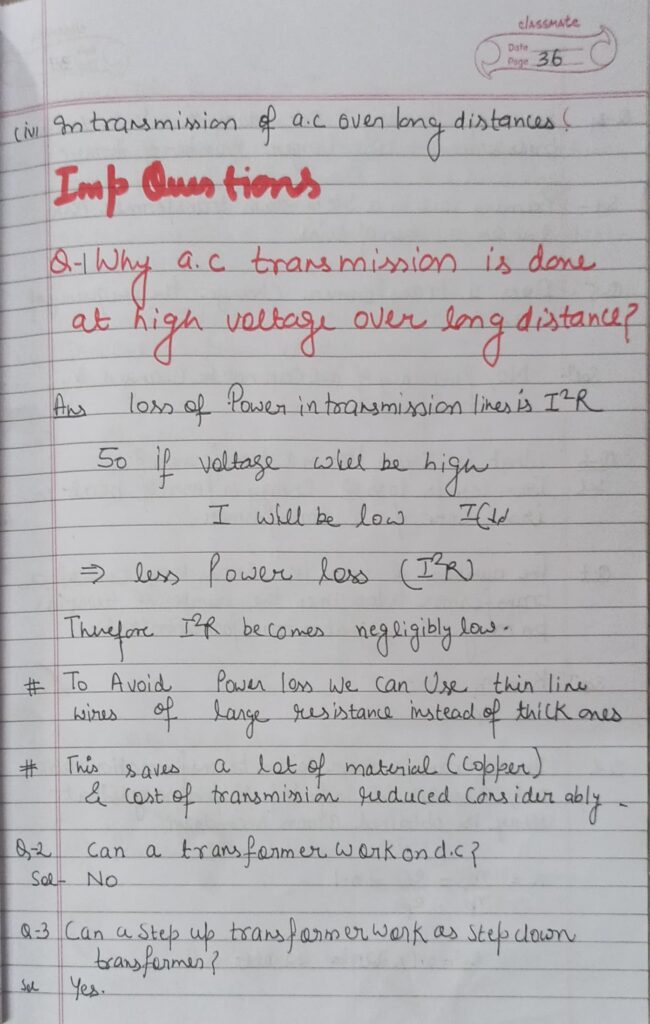 classmate
Date
Page 36
(iv) In transmission of a.c over long distances.
Imp Questions
Q-1 Why a.c transmission is done
at high voltage over long distance?
Ans loss of Power in transmission lines is I²R
So if voltage will be high
I will be low
⇒ less Power loss (I²R)
Therefore I²R becomes negligibly low.
# To Avoid Power loss We Can Use thin line
wires of large resistance instead of thick ones
# This saves a lot of material (Copper)
& Cost of transmission reduced Considerably.
Q-2 Can a transformer Work on d.c?
Sol- No
Q-3 Can a Step up transformer Work as step down
transformer?
Sol Yes.